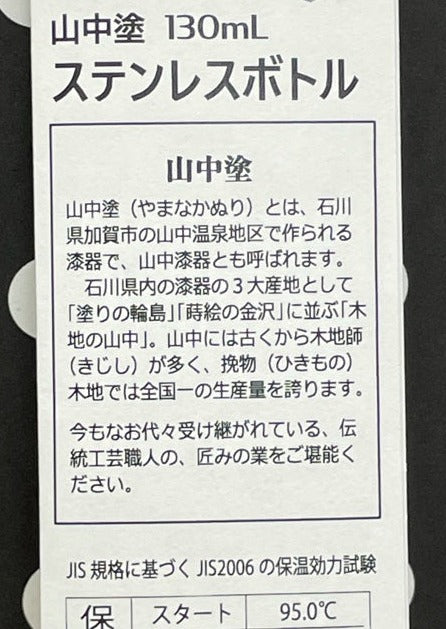 山中塗 130mL
ステンレスボトル
山中塗
山中塗（やまなかぬり）とは、石川
県加賀市の山中温泉地区で作られる
漆器で、山中漆器とも呼ばれます。
石川県内の漆器の３大産地として
「塗りの輪島」「蒔絵の金沢」に並ぶ「木
地の山中」。山中には古くから木地師
（きじし）が多く、挽物（ひきもの）
木地では全国一の生産量を誇ります。
今もなお代々受け継がれている、伝
統工芸職人の、匠みの業をご堪能く
ださい。
JIS 規格に基づく JIS2006 の保温効力試験
保 スタート 95.0℃